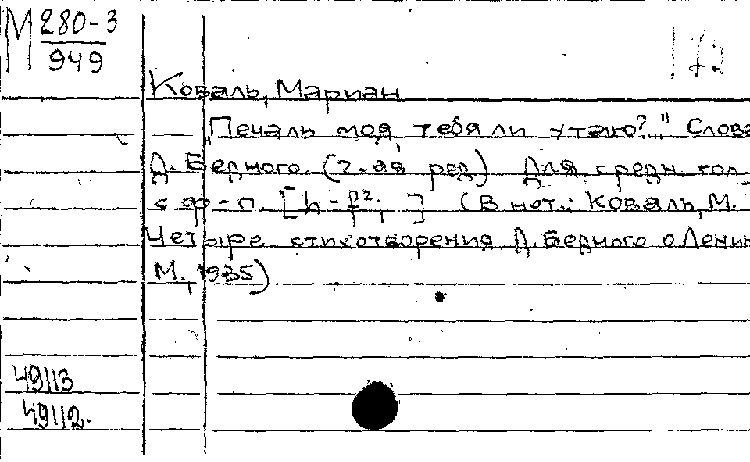 М 280-3
949
172
Коваль, Мариан
"Печаль моя, тебя ли утаю?" Слова
Д. Бедного. (2-ая ред.) Для средн. гол.
с ф-п. [h - f2.]
(В нот.: Коваль, М.
Четыре стихотворения Д. Бедного о Ленин
М., 1935)
49113
49112.